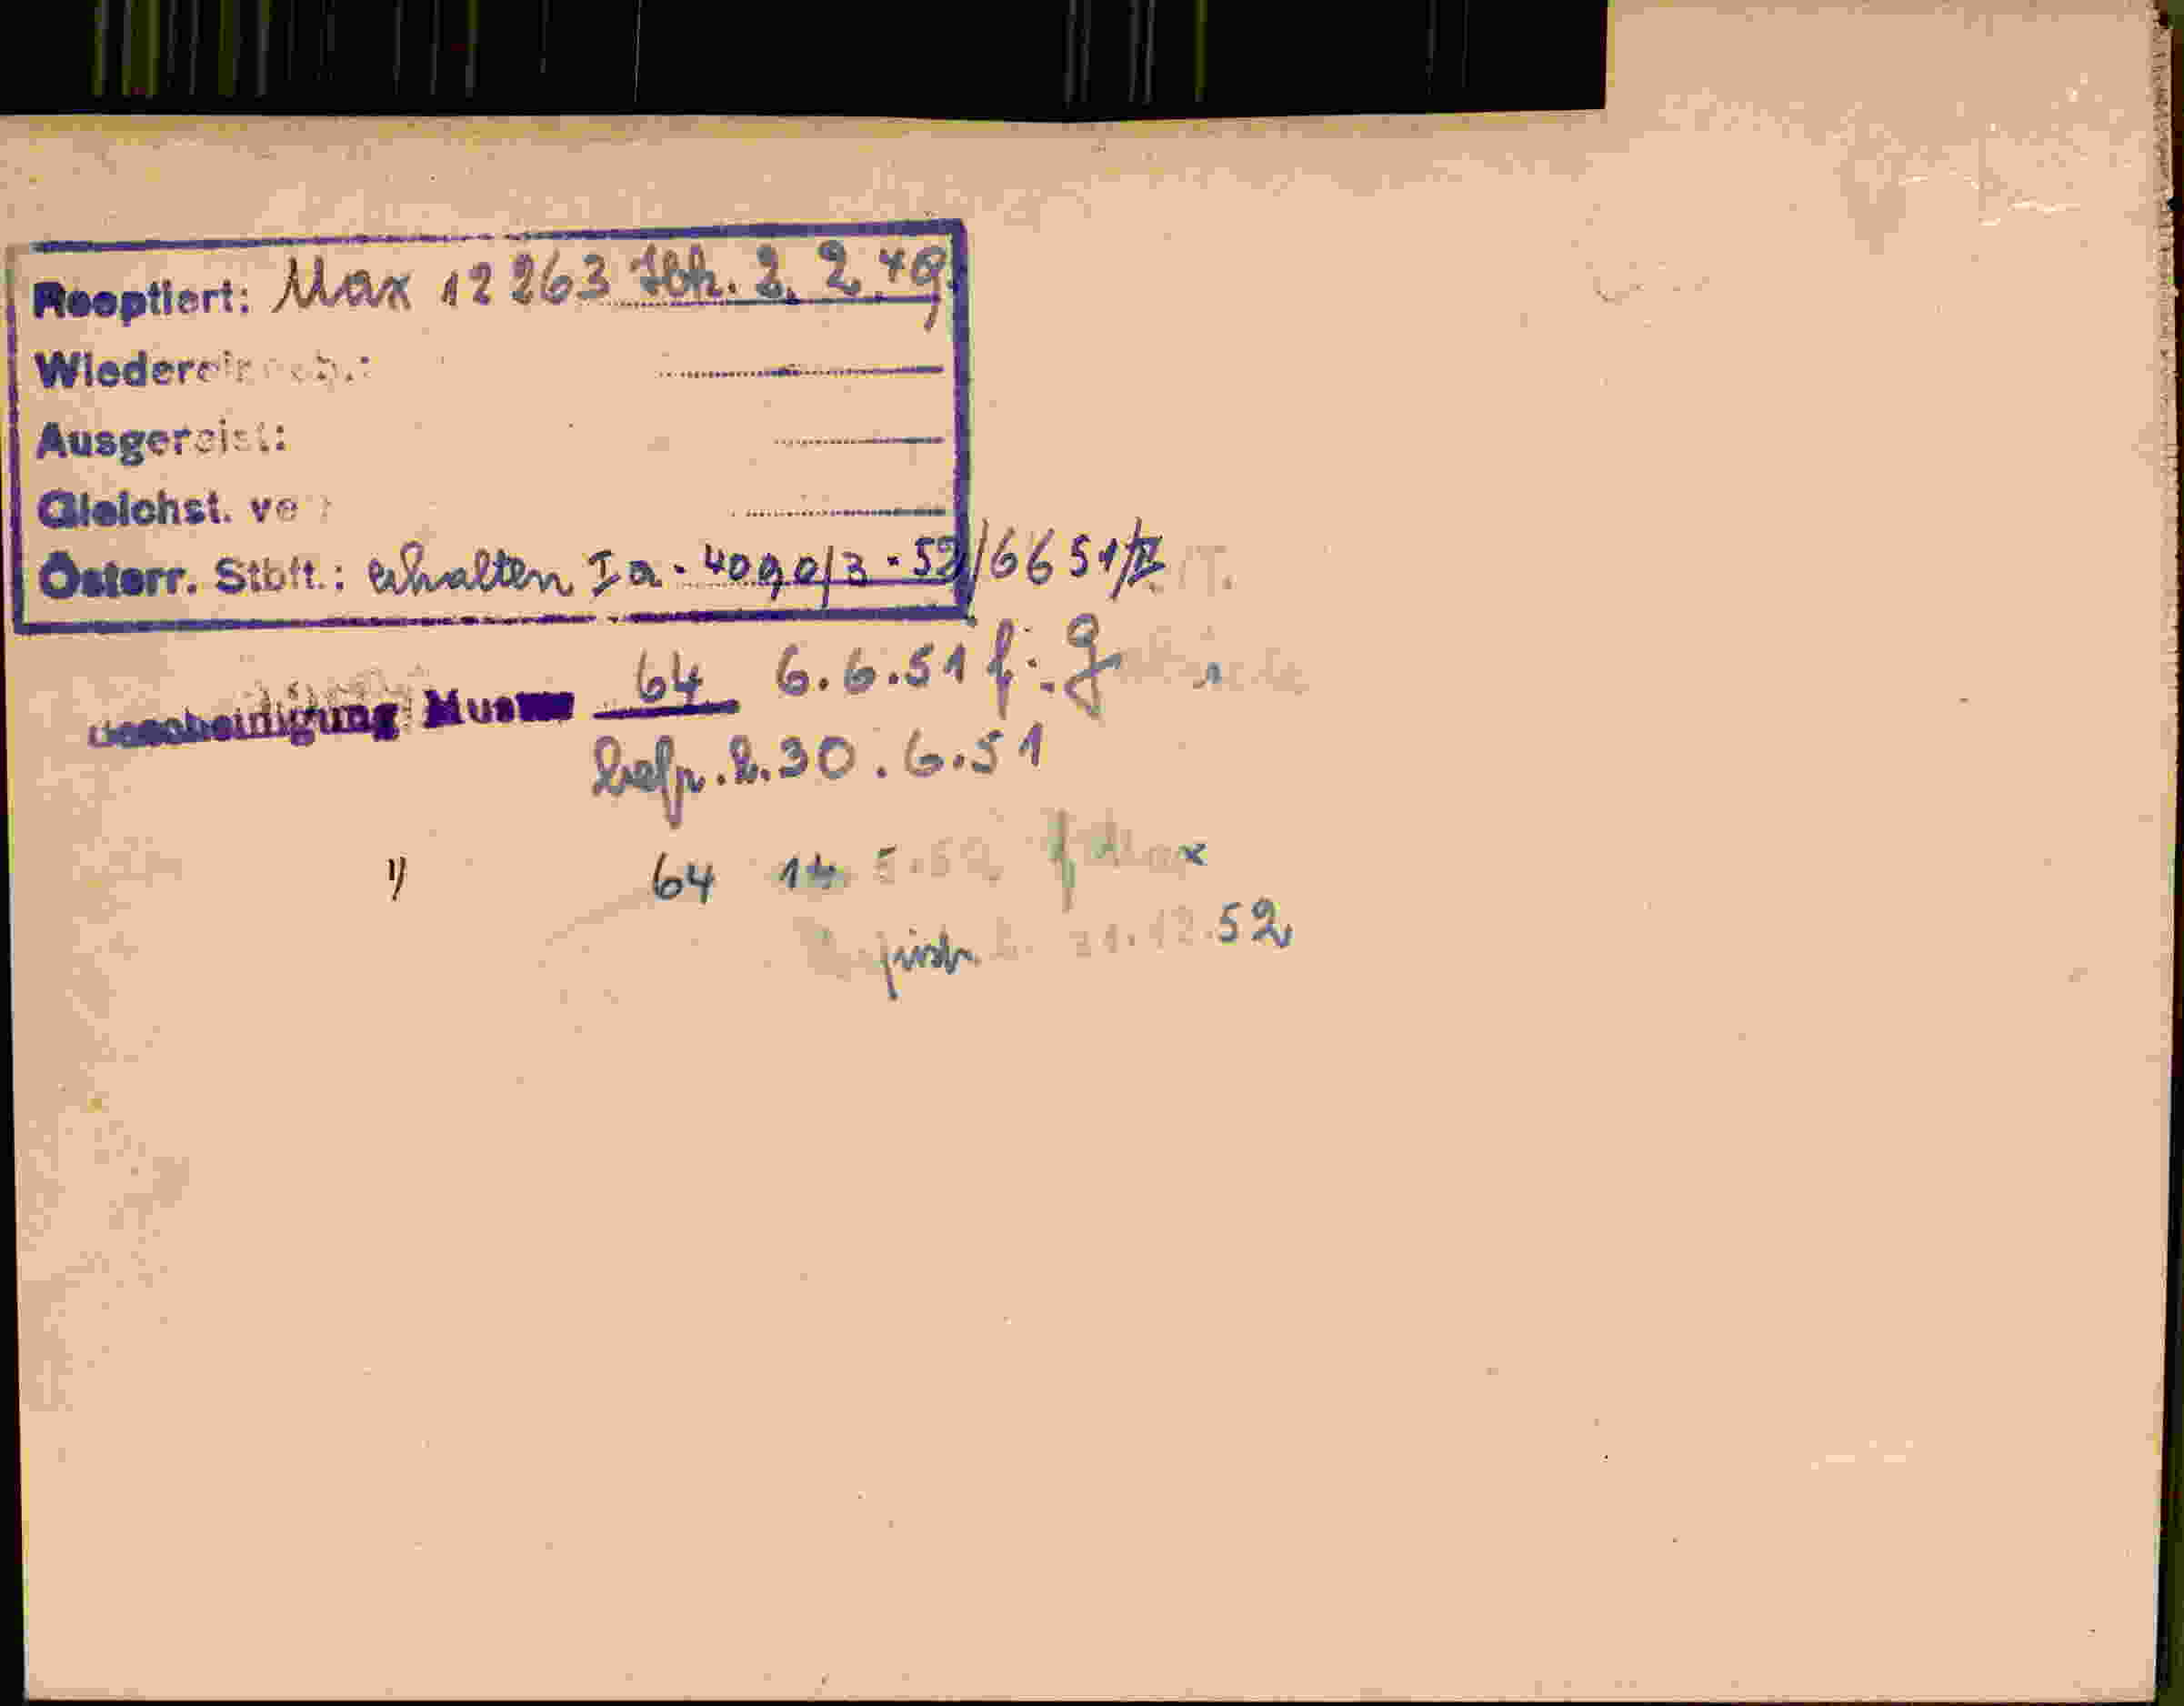 Reoptiert: Max 12 263 Ibk. 2. 2. 49.
Wiedereinb.:
Ausgereist:
Gleichst. ve
Österr. Stbft.: erhalten Ia - 4090/3 - 52/6651/II
Bescheinigung Muster 64 6.6.51 f.
30.6.51
") 64 14. 5.52 f. Max
31.12.52